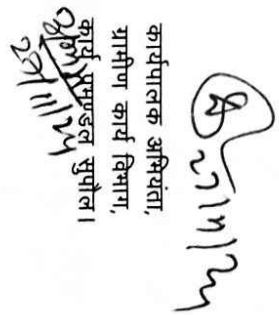 27/11/24
कार्यपालक अभियंता,
ग्रामीण कार्य विभाग,
कार्य प्रमण्डल सुपौल।
27/11/24